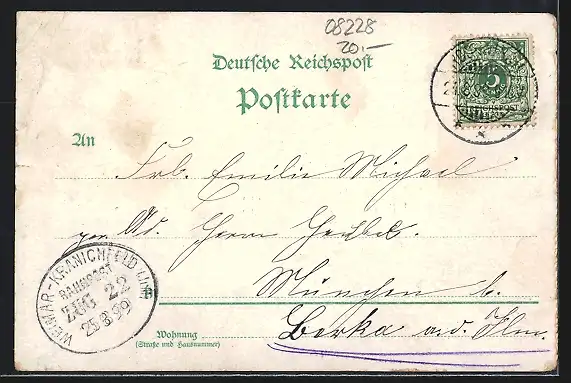 08228
20,-
Deutsche Reichspost
Postkarte
5
REICHSPOST
An
Frl. Emilie Michael
Ad. Herrn
München b.
WEIMAR-KRANICHFELD
BAHNPOST
ZUG 22
25.8.99
B
Wohnung
(Straße und Hausnummer)
Berka a.d. Ilm.